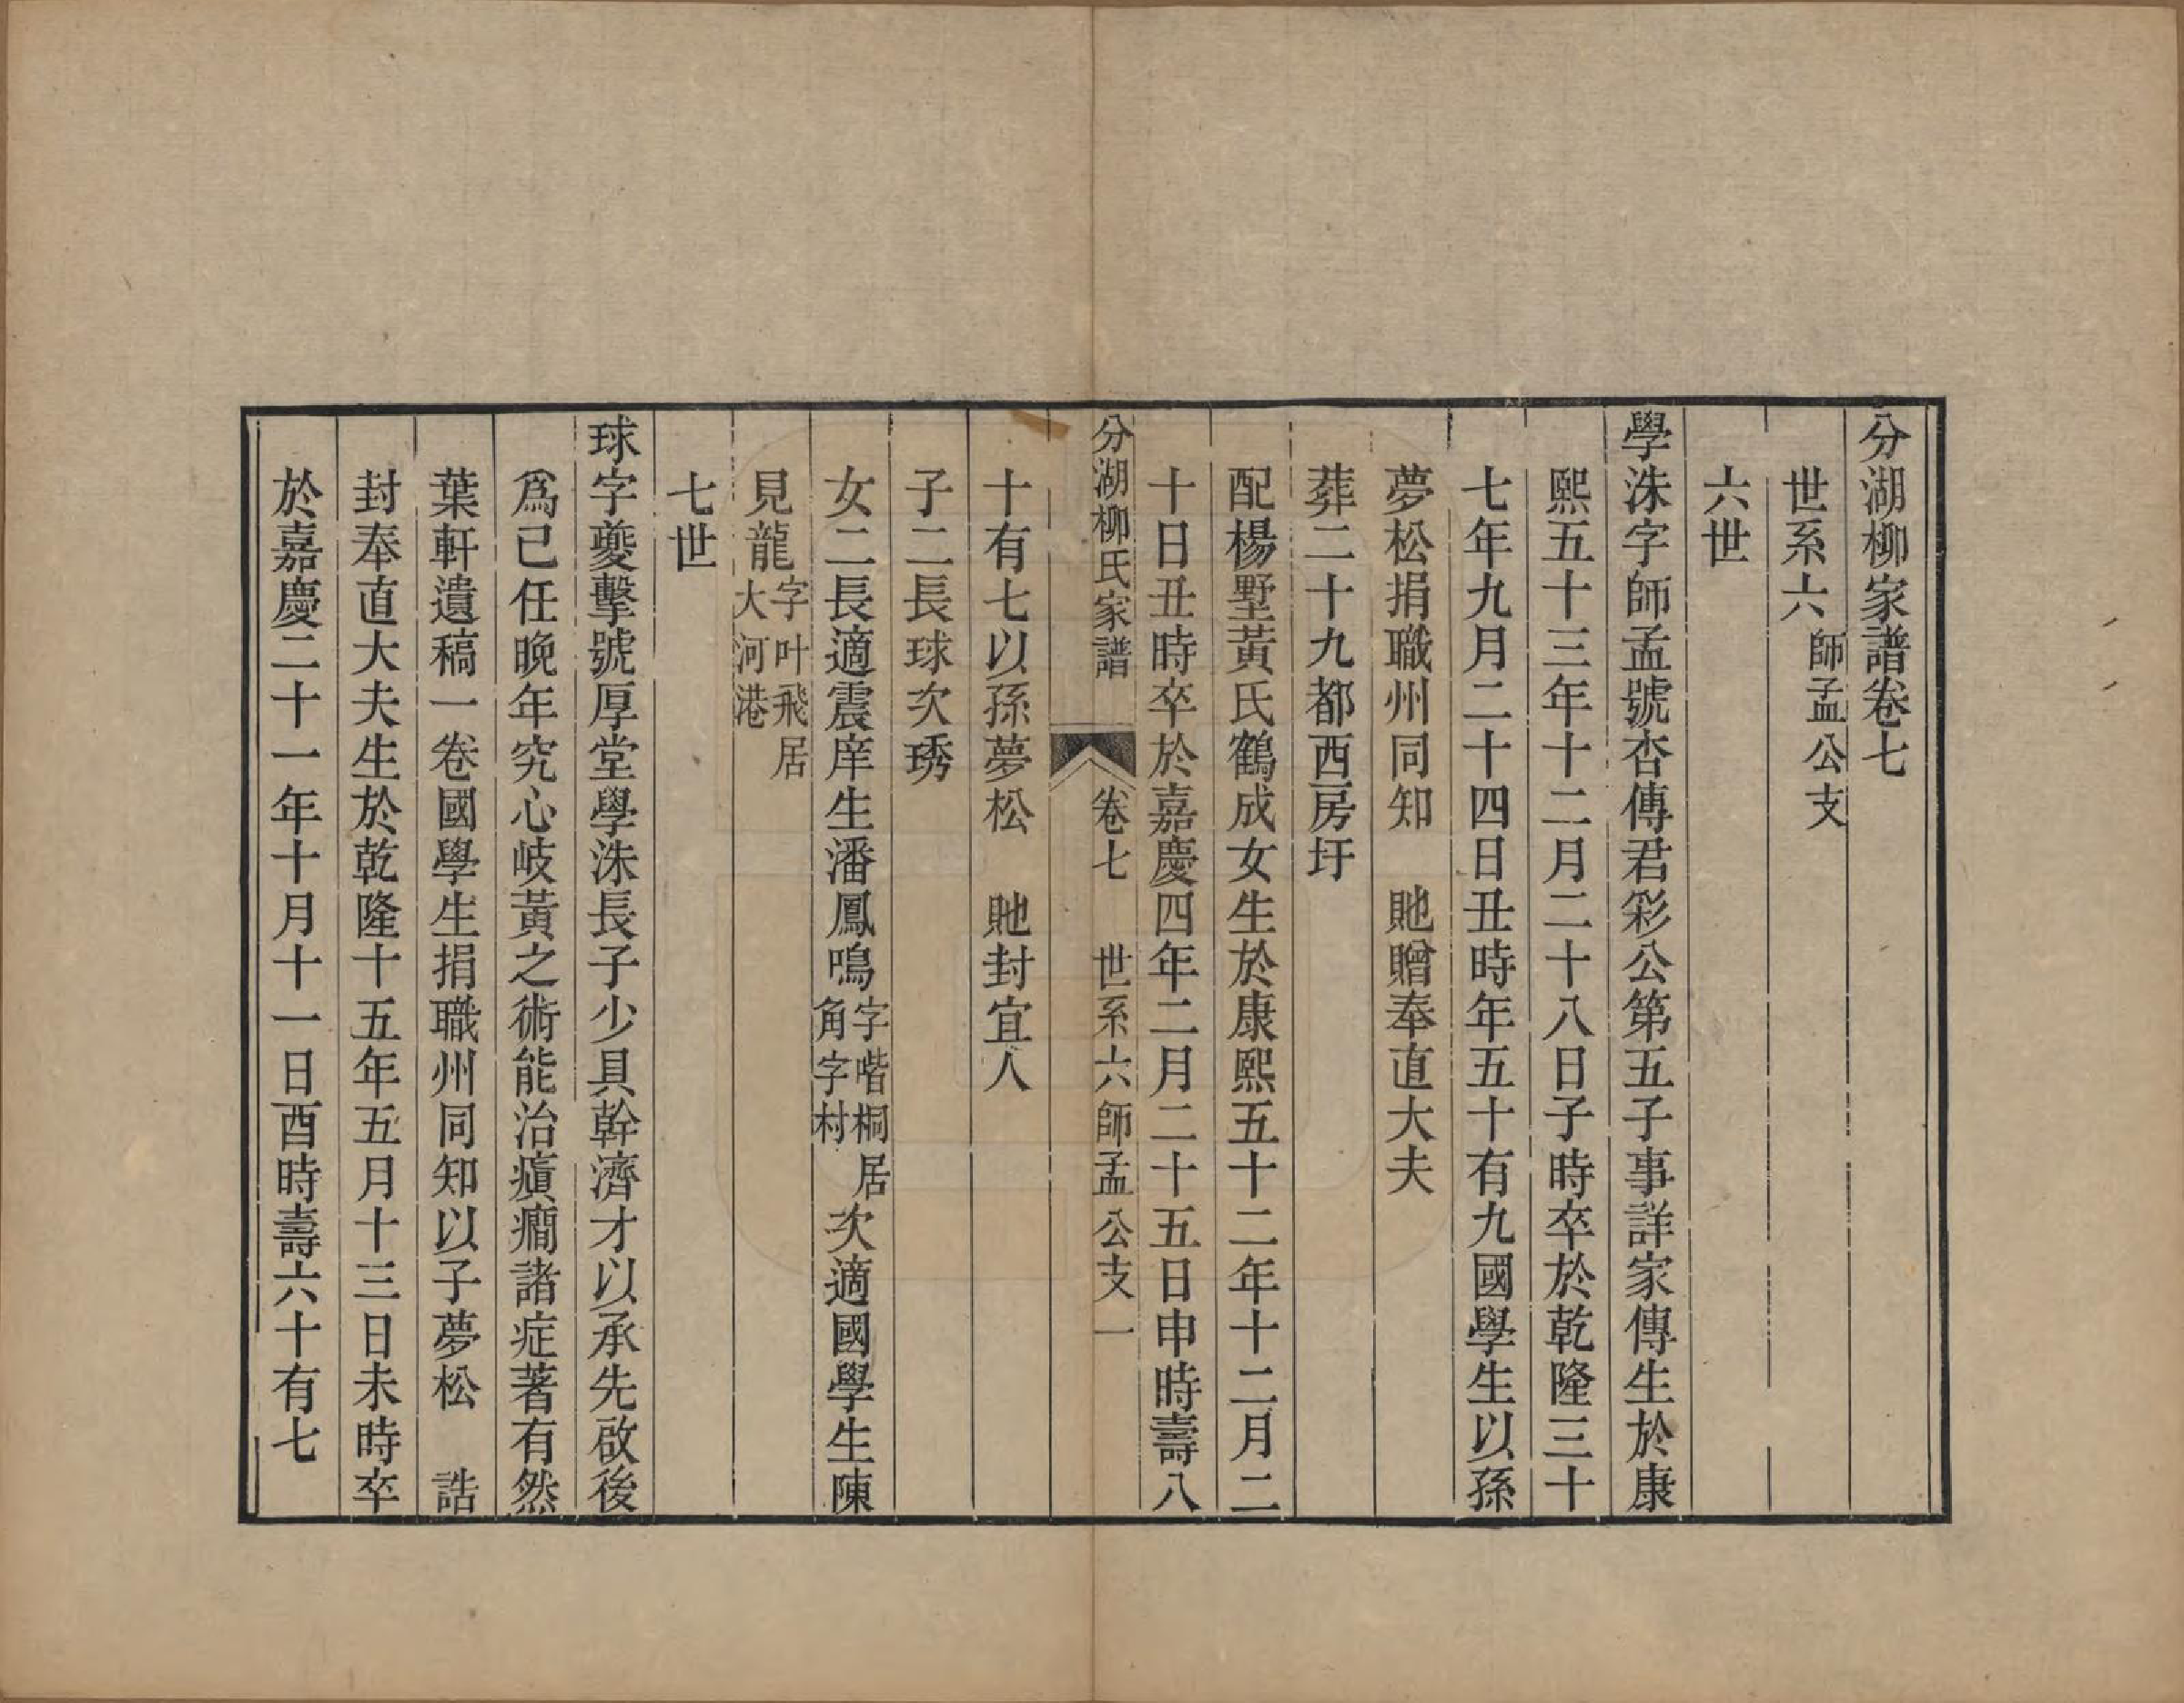 分湖柳家譜卷七
世系六師孟公支
六世
學洙字師孟號杏傳君彩公第五子事詳家傳生於康
熙五十三年十二月二十八日子時卒於乾隆三十
七年九月二十四日丑時年五十有九國學生以孫
夢松捐職州同知　貤贈奉直大夫
葬二十九都西房圩
配楊墅黃氏鶴成女生於康熙五十二年十二月二
十日丑時卒於嘉慶四年二月二十五日申時壽八
分湖柳氏家譜　卷七　世系六師孟公支一
十有七以孫夢松　貤封宜人
子二長球次琇
女二長適震庠生潘鳳鳴字喈桐居角字村次適國學生陳
見龍字叶飛居大河港
七世
球字夔擊號厚堂學洙長子少具幹濟才以承先啟後
爲已任晚年究心岐黃之術能治瘨癇諸症著有然
葉軒遺稿一卷國學生捐職州同知以子夢松　誥
封奉直大夫生於乾隆十五年五月十三日未時卒
於嘉慶二十一年十月十一日酉時壽六十有七